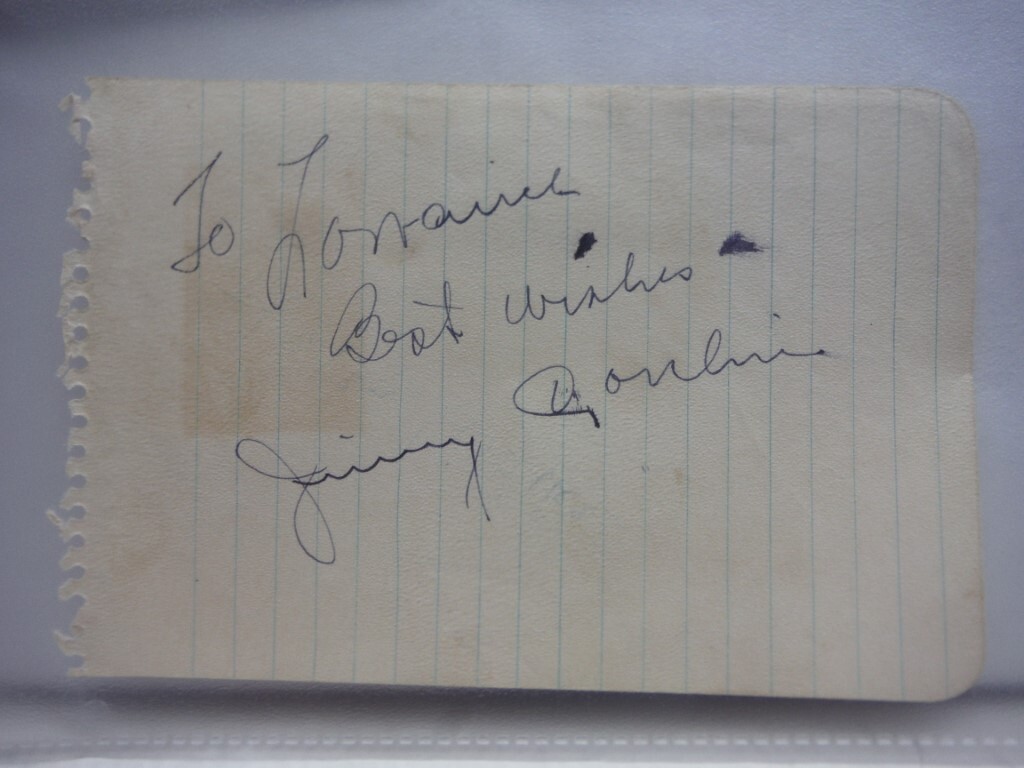 To Lorraine
Best Wishes
Jimmy Conlin